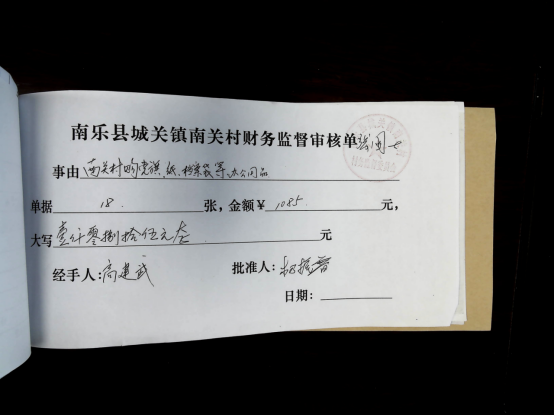 南乐县城关镇南关村财务监督审核单
事由 南关村购党旗、纸、档案袋等办公用品
单据 18 张，金额￥ 1085 元，
大写 壹仟零捌拾伍元 元
经手人：高建武 批准人：
日期：